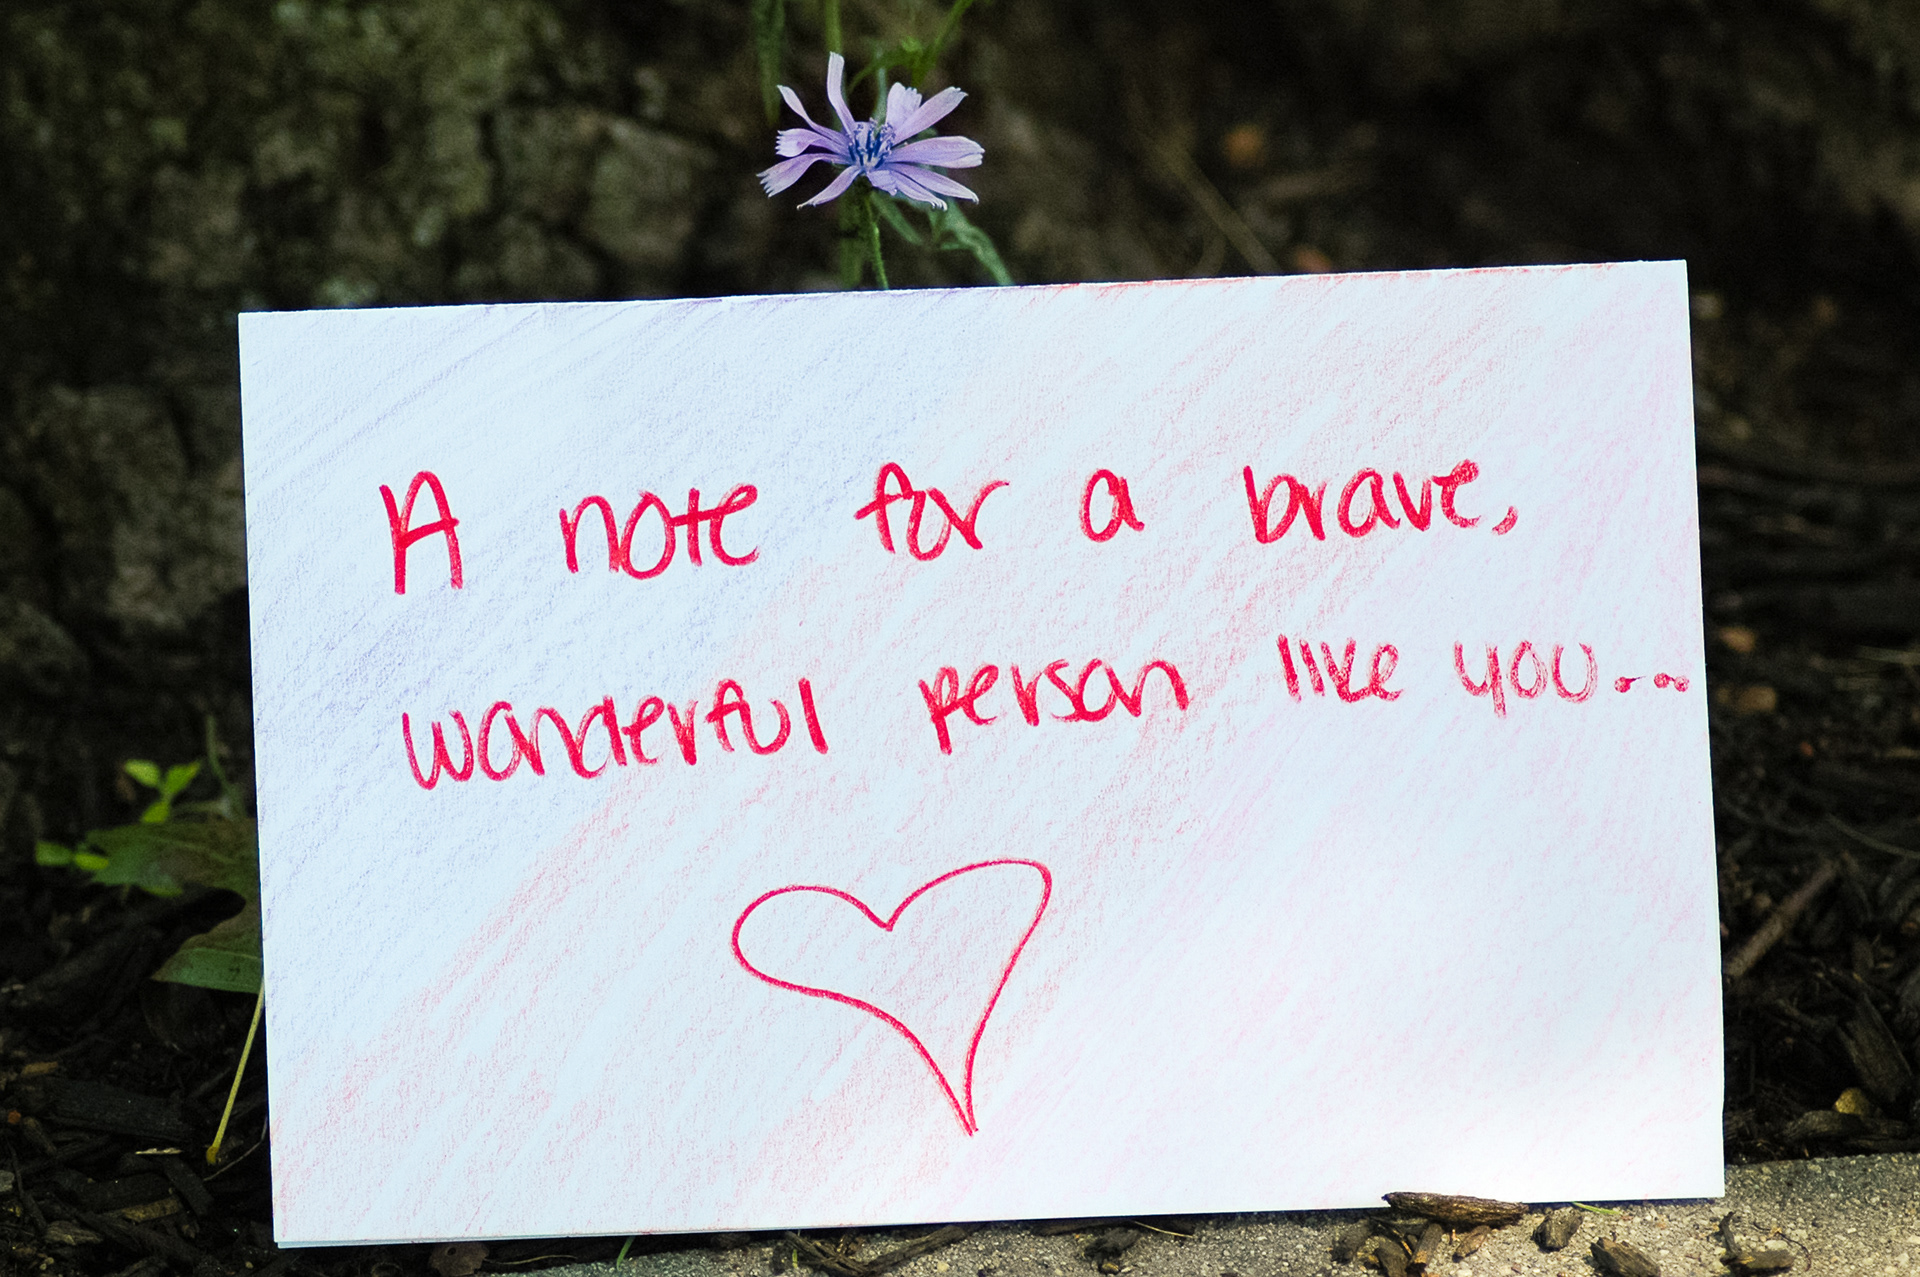 A note for a brave,
wonderful person like you...